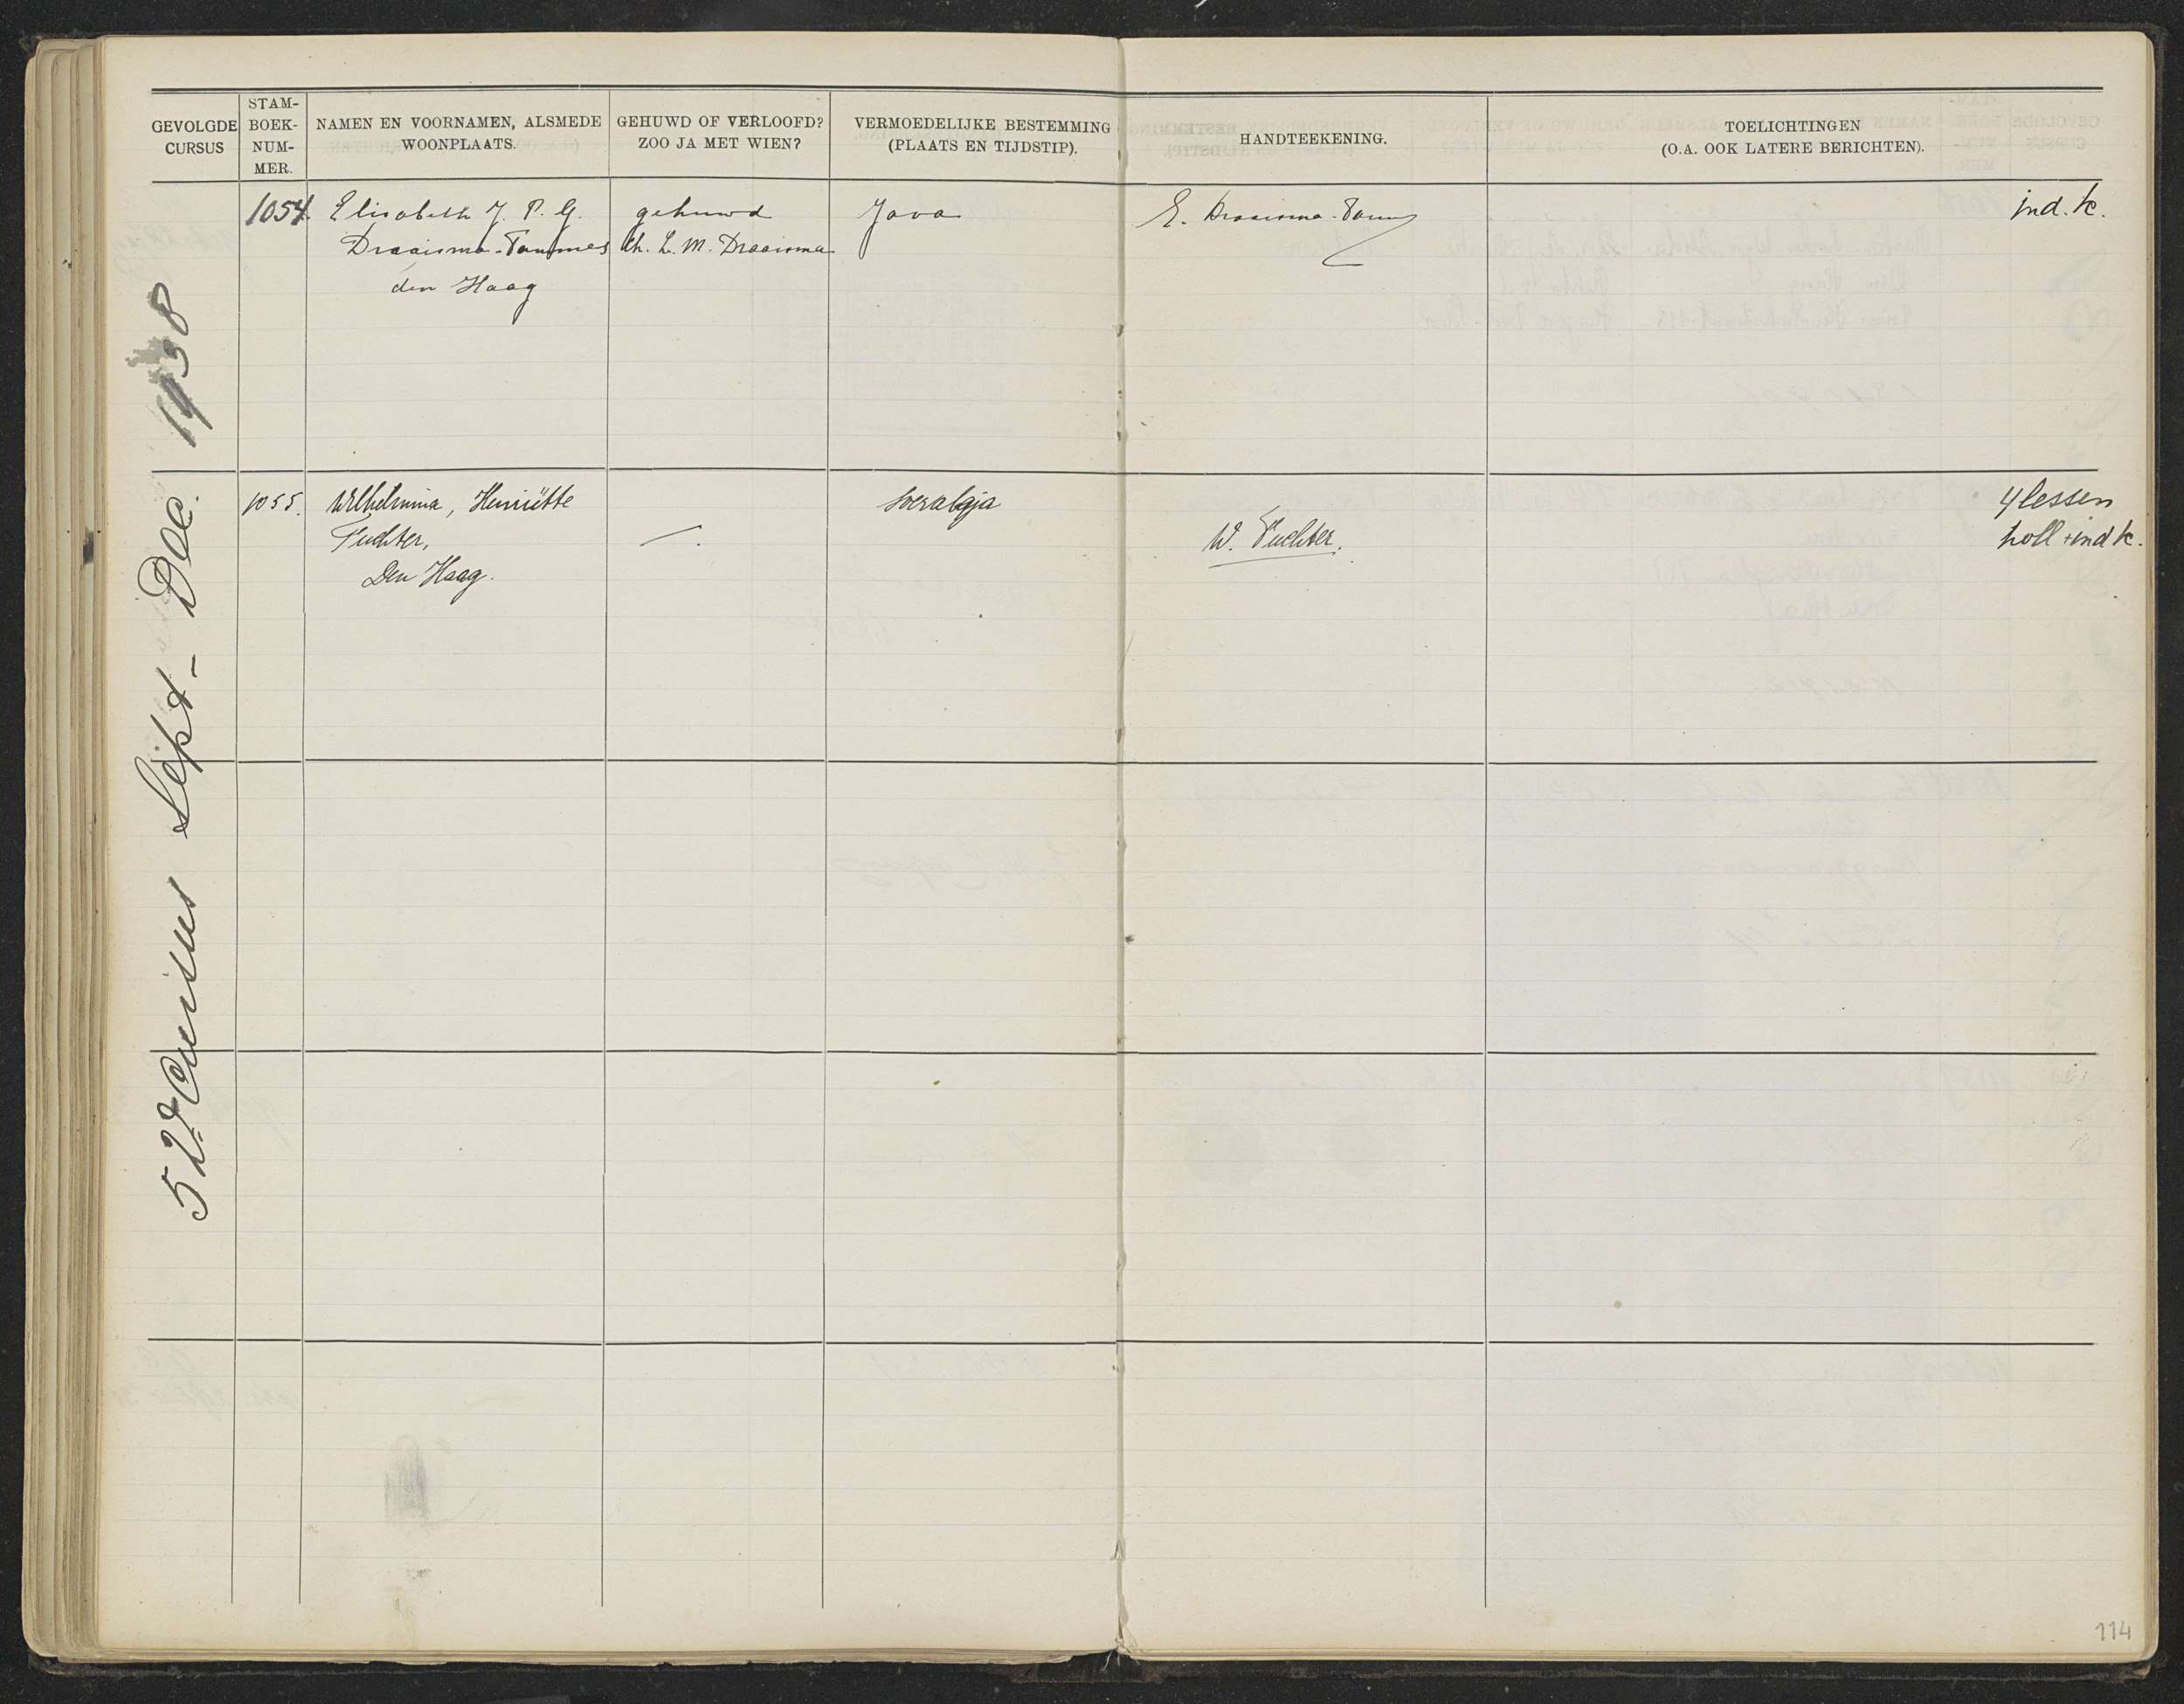 GEVOLGDE CURSUS
STAM-
BOEK-
NUM-
MER.
NAMEN EN VOORNAMEN, ALSMEDE
WOONPLAATS.
GEHUWD OF VERLOOFD?
ZOO JA MET WIEN?
VERMOEDELIJKE BESTEMMING
(PLAATS EN TIJDSTIP).
HANDTEEKENING.
TOELICHTINGEN
(O.A. OOK LATERE BERICHTEN).
52e Cursus Sept - Dec. 1938
1054. Elisabeth J. P. G. gehuwd Java E. Draaisma-Tammes ind. k.
Draaisma-Tammes Ch. L. M. Draaisma
den Haag
1055. Wilhelmina, Henriëtte Soerabaja 4 lessen
Fuchter, —. W. Fuchter. holl + ind k.
Den Haag.
114